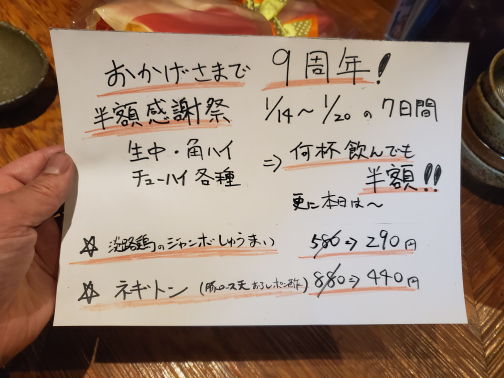 おかげさまで 9周年!
半額感謝祭 1/14〜1/20の7日間
生中・角ハイ
チューハイ各種 ⇒ 何杯飲んでも
半額!!
更に本日は〜
☆ 淡路鶏のジャンボしゅうまい 580⇒290円
☆ ネギトン (豚ロース天おろしポン酢) 880⇒440円